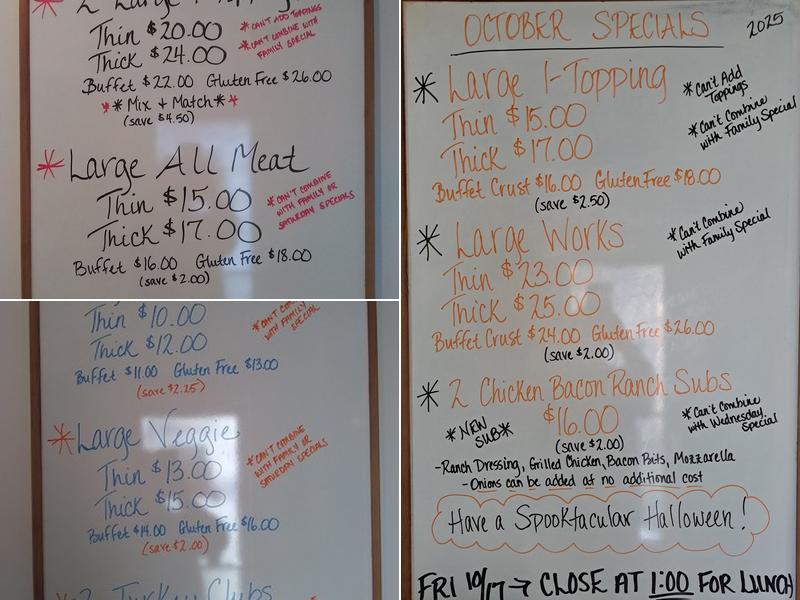 2 Large 1-Topping
Thin $20.00
Thick $24.00
*CAN'T ADD TOPPINGS
*CAN'T COMBINE WITH
FAMILY SPECIAL
Buffet $22.00 Gluten Free $26.00
**Mix + Match**
(save $4.50)
*Large All Meat
Thin $15.00
Thick $17.00
*CAN'T COMBINE
WITH FAMILY OR
SATURDAY SPECIALS
Buffet $16.00 Gluten Free $18.00
(save $2.00)
Thin $10.00
Thick $12.00
WITH FAMILY
SPECIAL
Buffet $11.00 Gluten Free $13.00
(save $2.25)
*Large Veggie
Thin $13.00
Thick $15.00
*CAN'T COMBINE
WITH FAMILY OR
SATURDAY SPECIALS
Buffet $14.00 Gluten Free $16.00
(save $2.00)
*2 Turkey Clubs
OCTOBER SPECIALS 2025
* Large 1-Topping
Thin $15.00
Thick $17.00
*Can't Add
Toppings
*Can't Combine
with Family Special
Buffet Crust $16.00 Gluten Free $18.00
(save $2.50)
* Large Works
Thin $23.00
Thick $25.00
*Can't Combine
with Family Special
Buffet Crust $24.00 Gluten Free $26.00
(save $2.00)
* 2 Chicken Bacon Ranch Subs
*NEW
SUB*
$16.00
(save $2.00)
*Can't Combine
with Wednesday
Special
-Ranch Dressing, Grilled Chicken, Bacon Bits, Mozzarella
-Onions can be added at no additional cost
Have a Spooktacular Halloween!
FRI 10/17→ CLOSE AT 1:00 FOR LUNCH